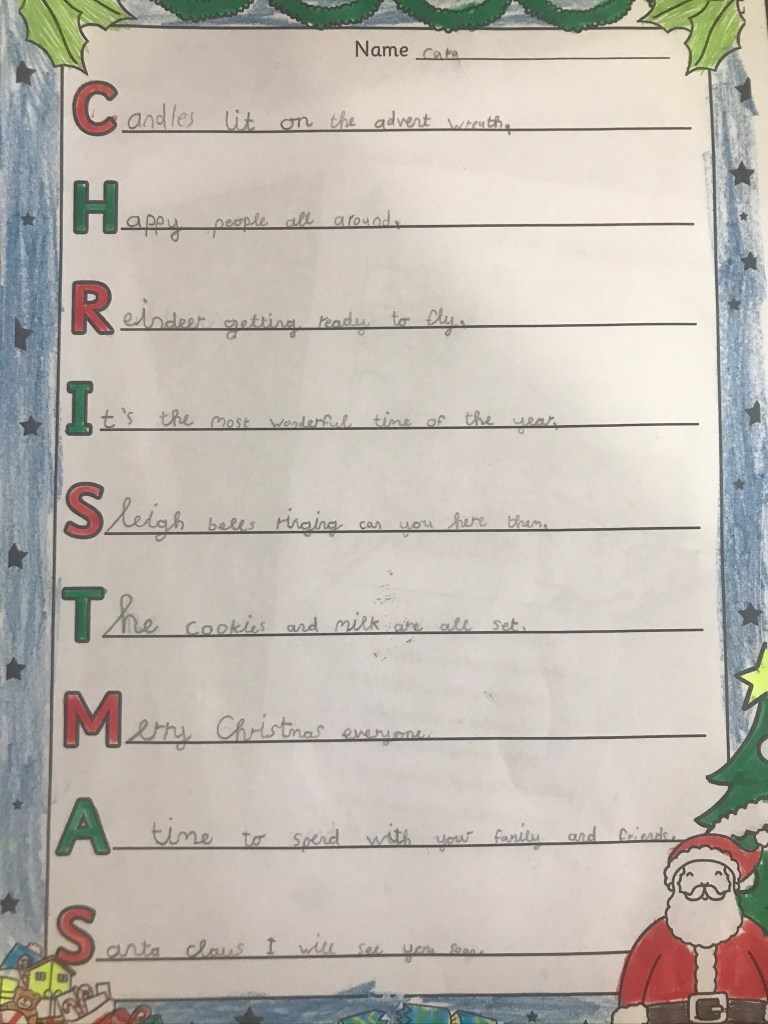 Name Cara
Candles lit on the advent wreath.
Happy people all around.
Reindeer getting ready to fly.
It's the most wonderful time of the year.
Sleigh bells ringing can you here them.
The cookies and milk are all set.
Merry Christmas everyone.
A time to spend with your family and friends.
Santa claus I will see you soon.